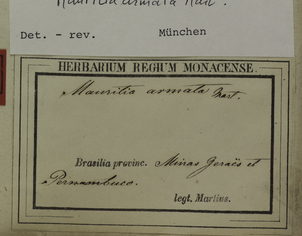 Mauritia armata Mart.
Det. - rev. München
HERBARIUM REGIUM MONACENSE.
Mauritia armata Mart.
Brasilia provinc. Minas Geraës et
Pernambuco.
legt. Martius.